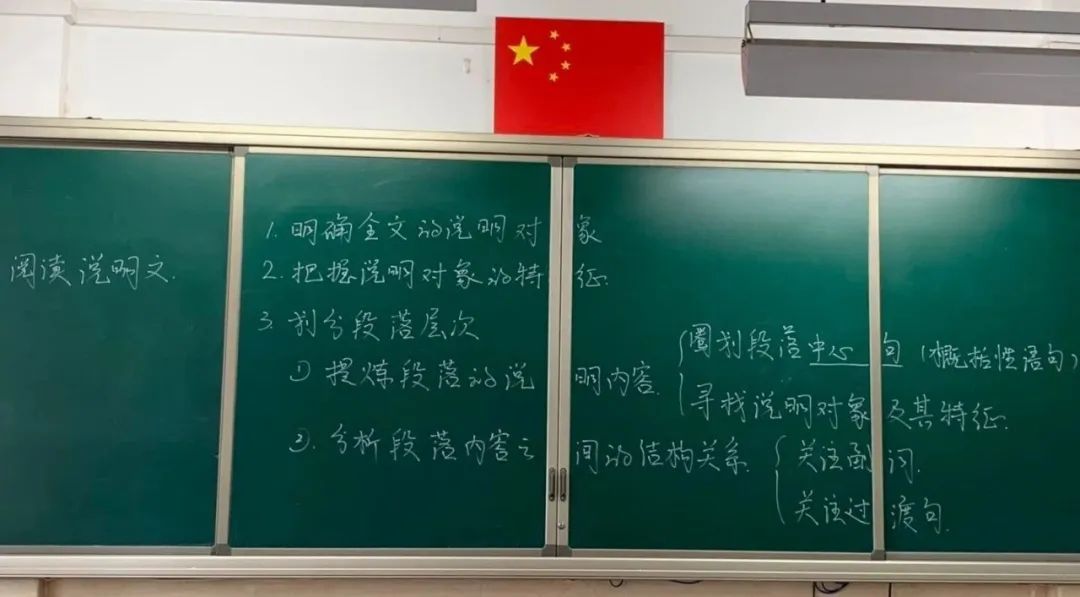 阅读说明文.
1. 明确全文的说明对象
2. 把握说明对象的特征.
3. 划分段落层次
① 提炼段落的说明内容.
圈划段落中心句(概括性语句)
寻找说明对象及其特征.
②. 分析段落内容之间的结构关系.
关注副词.
关注过渡句.